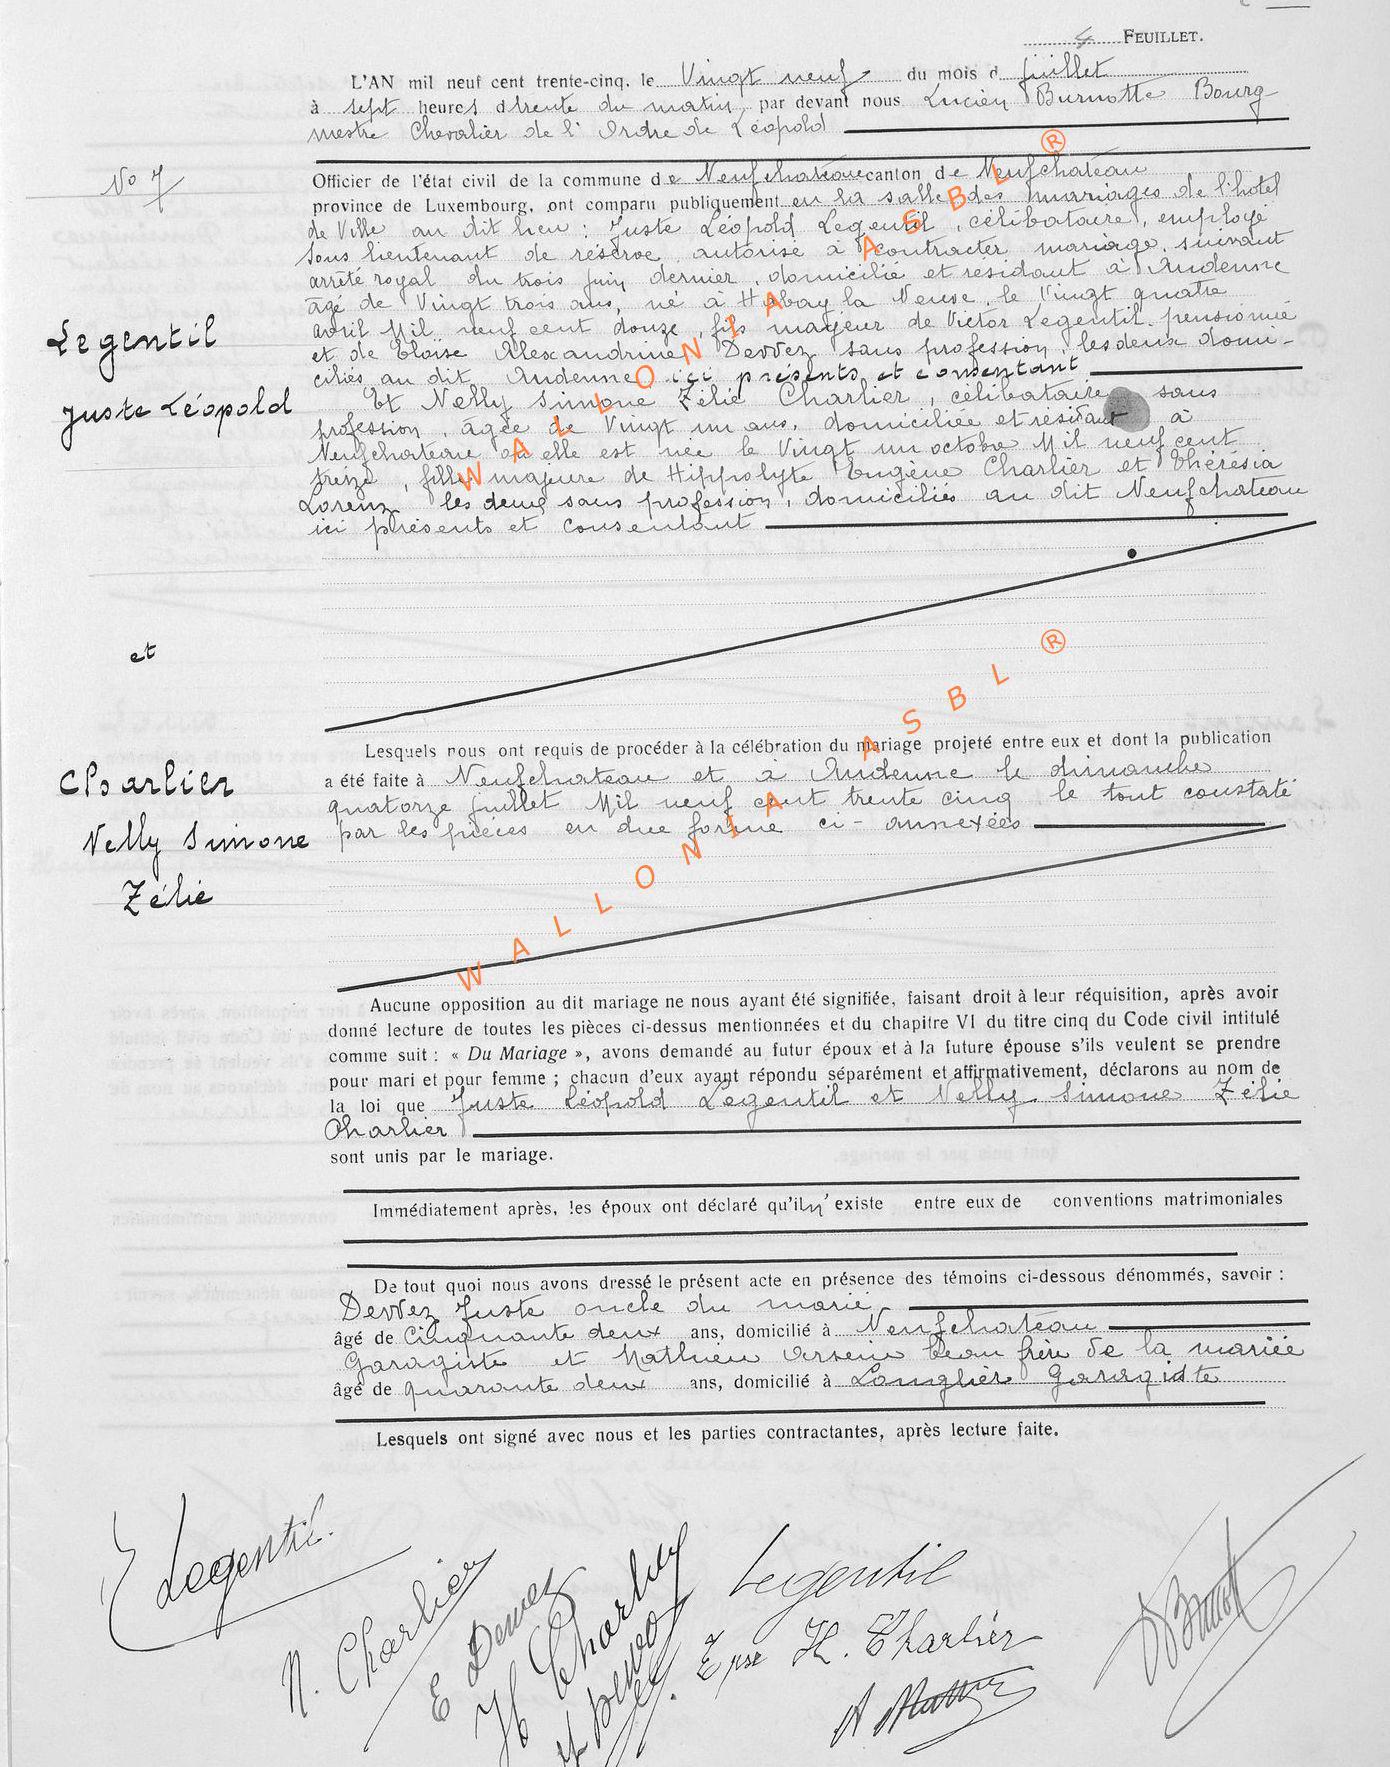 4 FEUILLET.
L'AN mil neuf cent trente-cinq, le Vingt neuf du mois d juillet
à sept heures d trente du matin, par devant nous Lucien Burnotte Bourg
mestre Chevalier de l'Ordre de Léopold
No 7
Officier de l'état civil de la commune de Neufchateau canton de Neufchateau
province de Luxembourg, ont comparu publiquement en la salle des mariages de l'hotel
de Ville au dit lieu : Juste Léopold Legentil, célibataire, employé
sous lieutenant de réserve, autorisé à contracter mariage, suivant
arrêté royal du trois juin dernier, domicilié et résidant à Andenne
âgé de Vingt trois ans, né à Habay la Neuve, le Vingt quatre
avril Mil neuf cent douze, fils majeur de Victor Legentil, pensionné
et de Eloïse Alexandrine Devvez sans profession, les deux domi-
ciliés au dit Andenne ici présents et consentant
Et Nelly Simone Zélie Charlier, célibataire, sans
profession, âgée de Vingt un ans, domiciliée et résidant à
Neufchateau où elle est née le Vingt un octobre Mil neuf cent
treize, fille majeure de Hippolyte Eugène Charlier et Thérésia
Lorenz les deux sans profession, domiciliés au dit Neufchateau
ici présents et consentant
Legentil
Juste Léopold
et
Charlier
Nelly Simone
Zélie
Lesquels nous ont requis de procéder à la célébration du mariage projeté entre eux et dont la publication
a été faite à Neufchateau et à Andenne le dimanche
quatorze juillet Mil neuf cent trente cinq le tout constaté
par les pièces en due forme ci-annexées
Aucune opposition au dit mariage ne nous ayant été signifiée, faisant droit à leur réquisition, après avoir
donné lecture de toutes les pièces ci-dessus mentionnées et du chapitre VI du titre cinq du Code civil intitulé
comme suit : « Du Mariage », avons demandé au futur époux et à la future épouse s'ils veulent se prendre
pour mari et pour femme ; chacun d'eux ayant répondu séparément et affirmativement, déclarons au nom de
la loi que Juste Léopold Legentil et Nelly Simone Zélie
Charlier
sont unis par le mariage.
Immédiatement après, les époux ont déclaré qu'il n'existe entre eux de conventions matrimoniales
De tout quoi nous avons dressé le présent acte en présence des témoins ci-dessous dénommés, savoir :
Devvez Juste oncle du marié
âgé de Cinquante deux ans, domicilié à Neufchateau
Garagiste et Mathieu Arsène beau frère de la mariée
âgé de quarante deux ans, domicilié à Longlier Garagiste
Lesquels ont signé avec nous et les parties contractantes, après lecture faite.
Legentil.
N. Charlier
E Devvez
H Charlier
Legentil
Epse H. Charlier
WALLONIA ASBL ®
WALLONIA ASBL ®